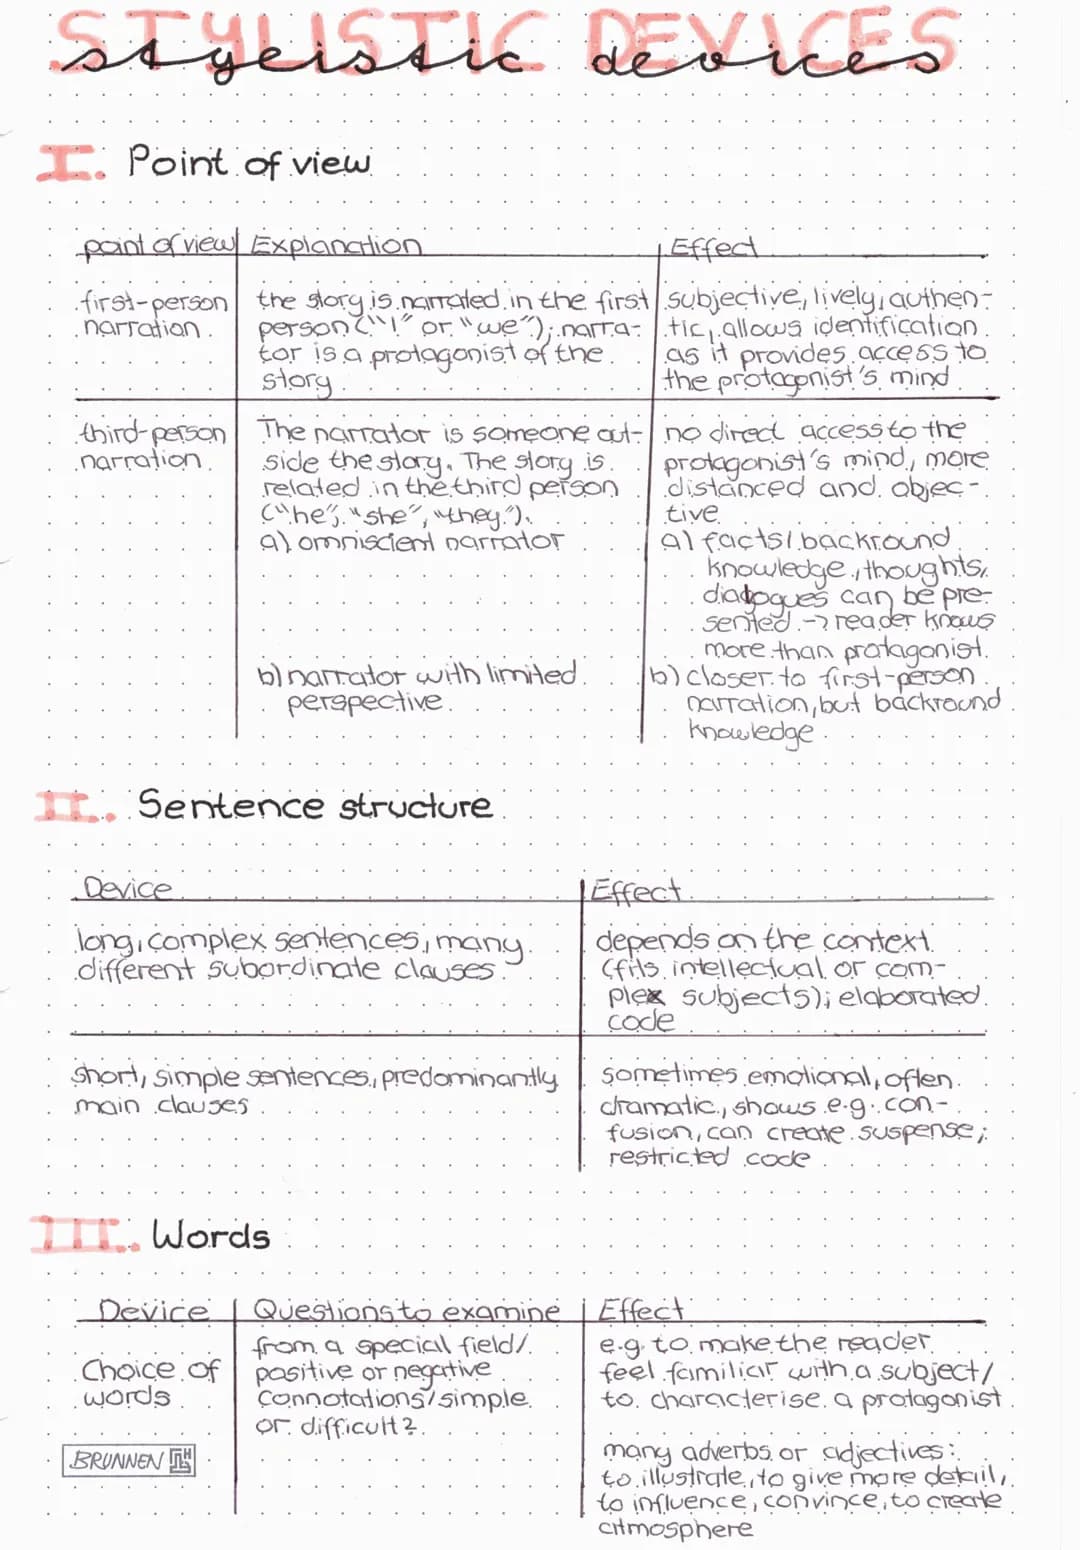 STYLISTIC DEVICES
stylistic devices
I. Point of view
point of view Explanation Effect
first-person the story is narrated in the first subjective, lively, authen-
narration person ("I" or "we"); narra- tic, allows identification
tor is a protagonist of the as it provides access to
story the protagonist's mind
third-person The narrator is someone out- no direct access to the
narration side the story. The story is protagonist's mind, more
related in the third person distanced and objec-
("he", "she", "they"). tive
a) omniscient narrator a) facts/backround
knowledge, thoughts,
dialogues can be pre-
sented -> reader knows
more than protagonist.
b) narrator with limited b) closer to first-person
perspective narration, but backround
knowledge
II. Sentence structure
Device Effect
long, complex sentences, many depends on the context
different subordinate clauses (fits intellectual or com-
plex subjects); elaborated
code
short, simple sentences, predominantly sometimes emotional, often
main clauses dramatic, shows e.g. con-
fusion, can create suspense;
restricted code
III. Words
Device Questions to examine Effect
from a special field/ e.g. to make the reader
Choice of positive or negative feel familiar with a subject/
words connotations/simple to characterise a protagonist
or difficult?
many adverbs or adjectives:
BRUNNEN to illustrate, to give more detail,
to influence, convince, to create
atmosphere